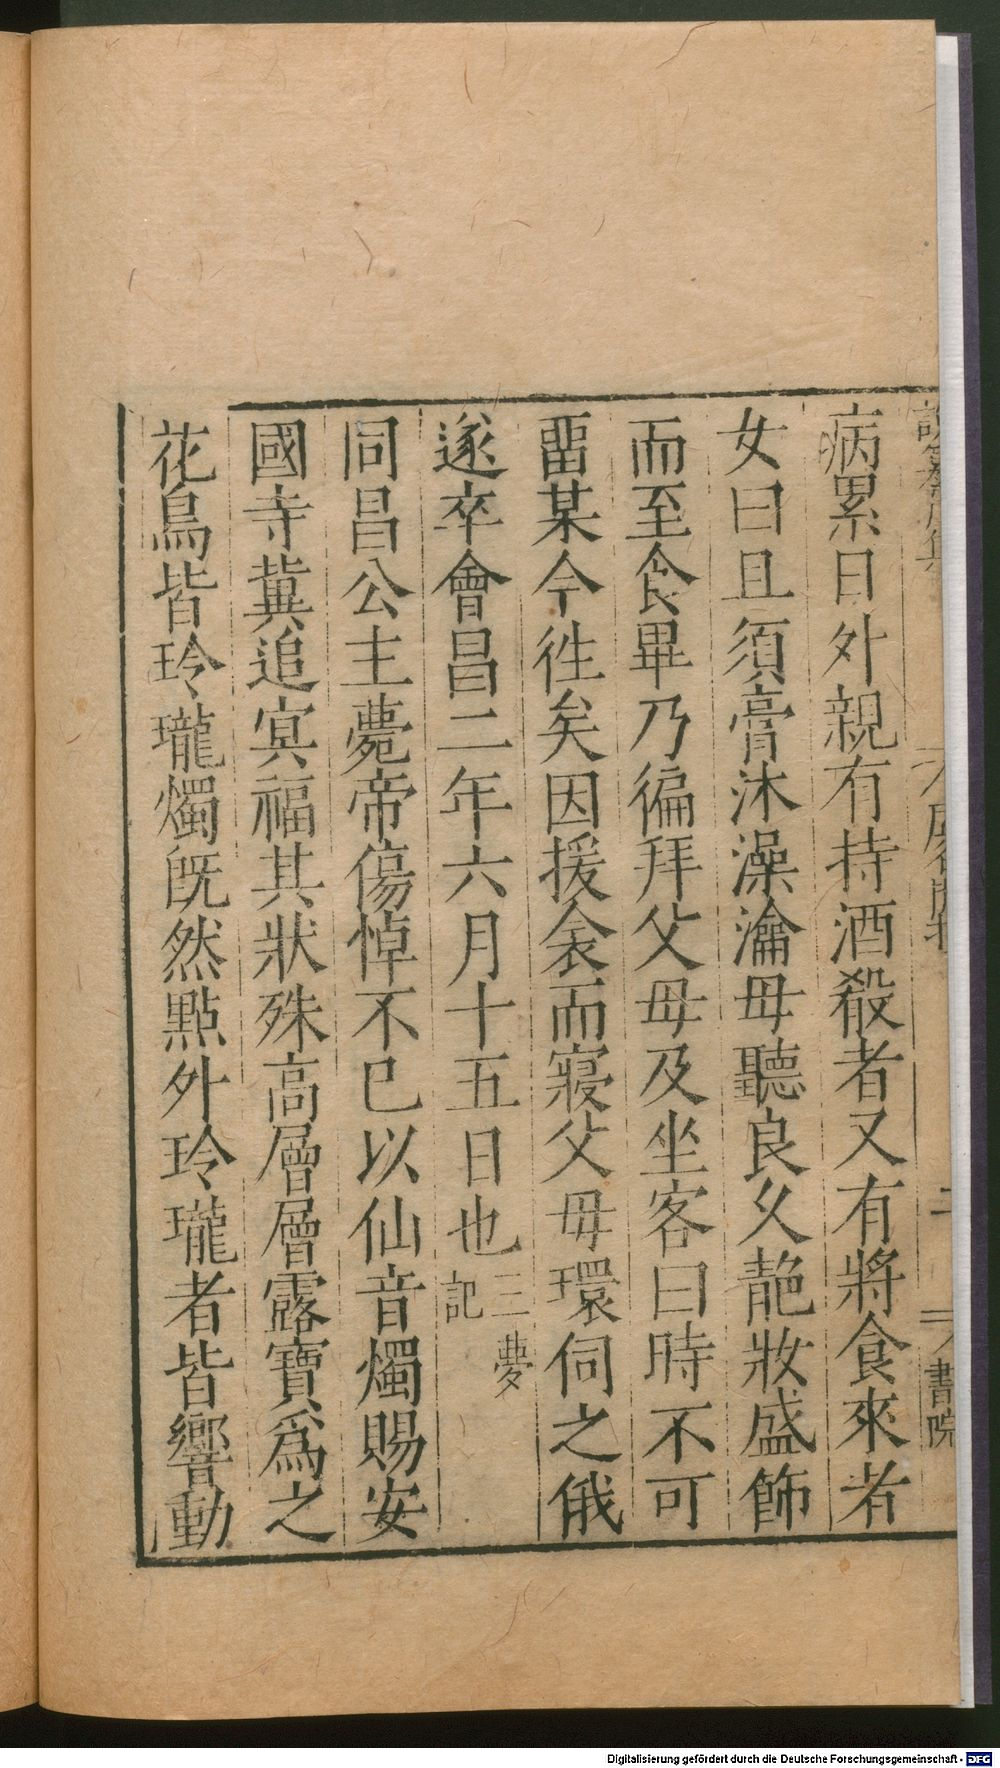 病累日外親有持酒殽者又有將食來者
女曰且須膏沐澡瀹母聽良久艴妝盛飾
而至食畢乃徧拜父母及坐客曰時不可
畱某今徃矣因援衾而寢父母環伺之俄
遂卒會昌二年六月十五日也三夢記
同昌公主薨帝傷悼不已以仙音燭賜安
國寺冀追冥福其狀殊高層層露寶爲之
花鳥皆玲瓏燭既然點外玲瓏者皆響動
書院
Digitalisierung gefördert durch die Deutsche Forschungsgemeinschaft - DFG